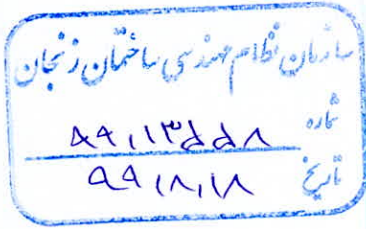 سازمان نظام مهندسی ساختمان زنجان
شماره
تاریخ ۹۹,۸,۱۸